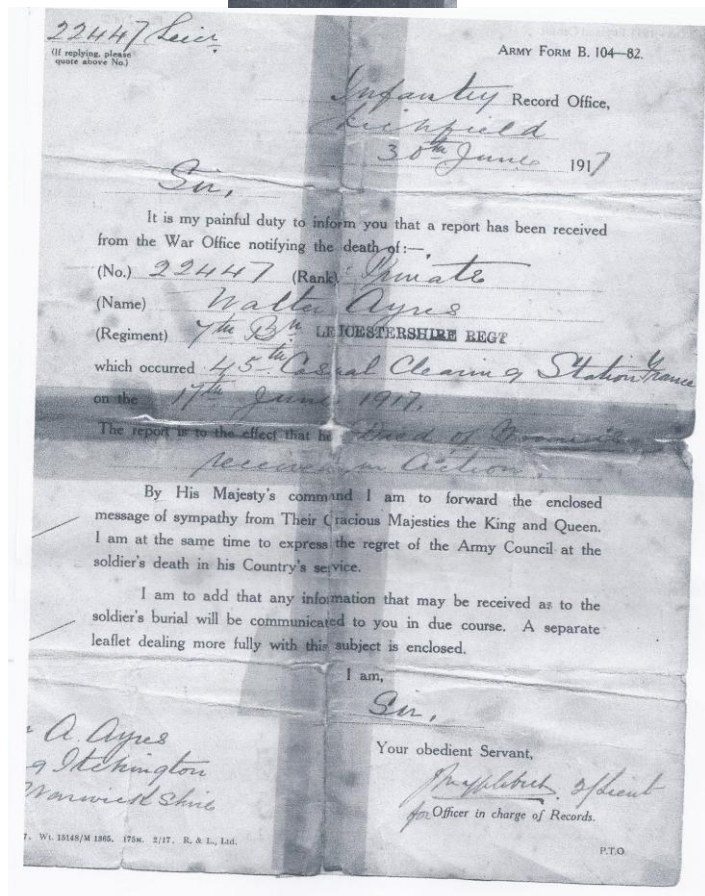 22447 Leic.
(If replying, please
quote above No.)
ARMY FORM B. 104—82.
Infantry Record Office,
Lichfield
30th June 1917
Sir,
It is my painful duty to inform you that a report has been received
from the War Office notifying the death of:—
(No.) 22447 (Rank) Private
(Name) Walter Ayres
(Regiment) 7th Bn LEICESTERSHIRE REGT
which occurred 45th Casual Clearing Station France
on the 17th June 1917.
The report is to the effect that he Died of Wounds
received in Action.
By His Majesty's command I am to forward the enclosed
message of sympathy from Their Gracious Majesties the King and Queen.
I am at the same time to express the regret of the Army Council at the
soldier's death in his Country's service.
I am to add that any information that may be received as to the
soldier's burial will be communicated to you in due course. A separate
leaflet dealing more fully with this subject is enclosed.
I am,
Sir,
A. Ayres
g Itchington
Warwickshire
Your obedient Servant,
2/Lieut
for Officer in charge of Records.
7. Wt. 15148/M 1365. 175M. 2/17. R. & L., Ltd.
P.T.O